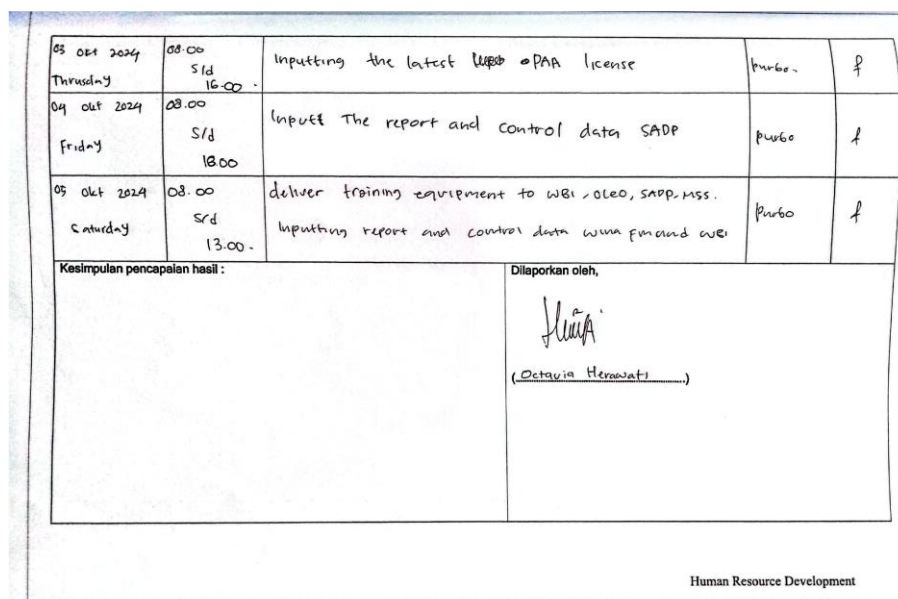 03 okt 2024
Thrusday
08.00
s/d
16.00.
Inputting the latest PAA license
purbo.
f
04 okt 2024
Friday
08.00
s/d
Inputt The report and control data SADP
purbo
f
05 okt 2024
Saturday
08.00
s/d
13.00.
deliver training equipment to WBI, OLEO, SADP, MSS.
Inputting report and control data wina WBI
purbo
f
Kesimpulan pencapaian hasil :
Dilaporkan oleh,
(Octavia Herawati)
Human Resource Development